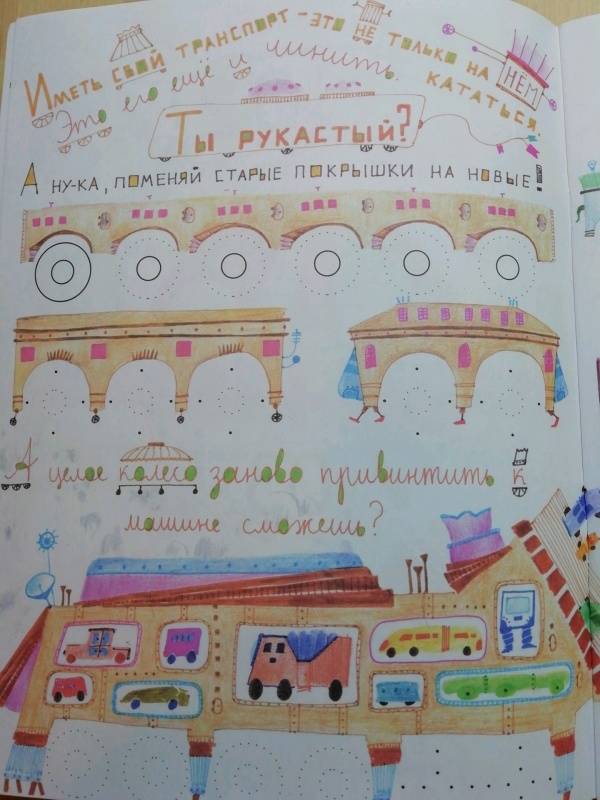 Иметь свой транспорт - это не только на нём кататься.
Это его ещё и чинить.
Ты рукастый?
А ну-ка, поменяй старые покрышки на новые!
А целое колесо заново привинтить к
машине сможешь?